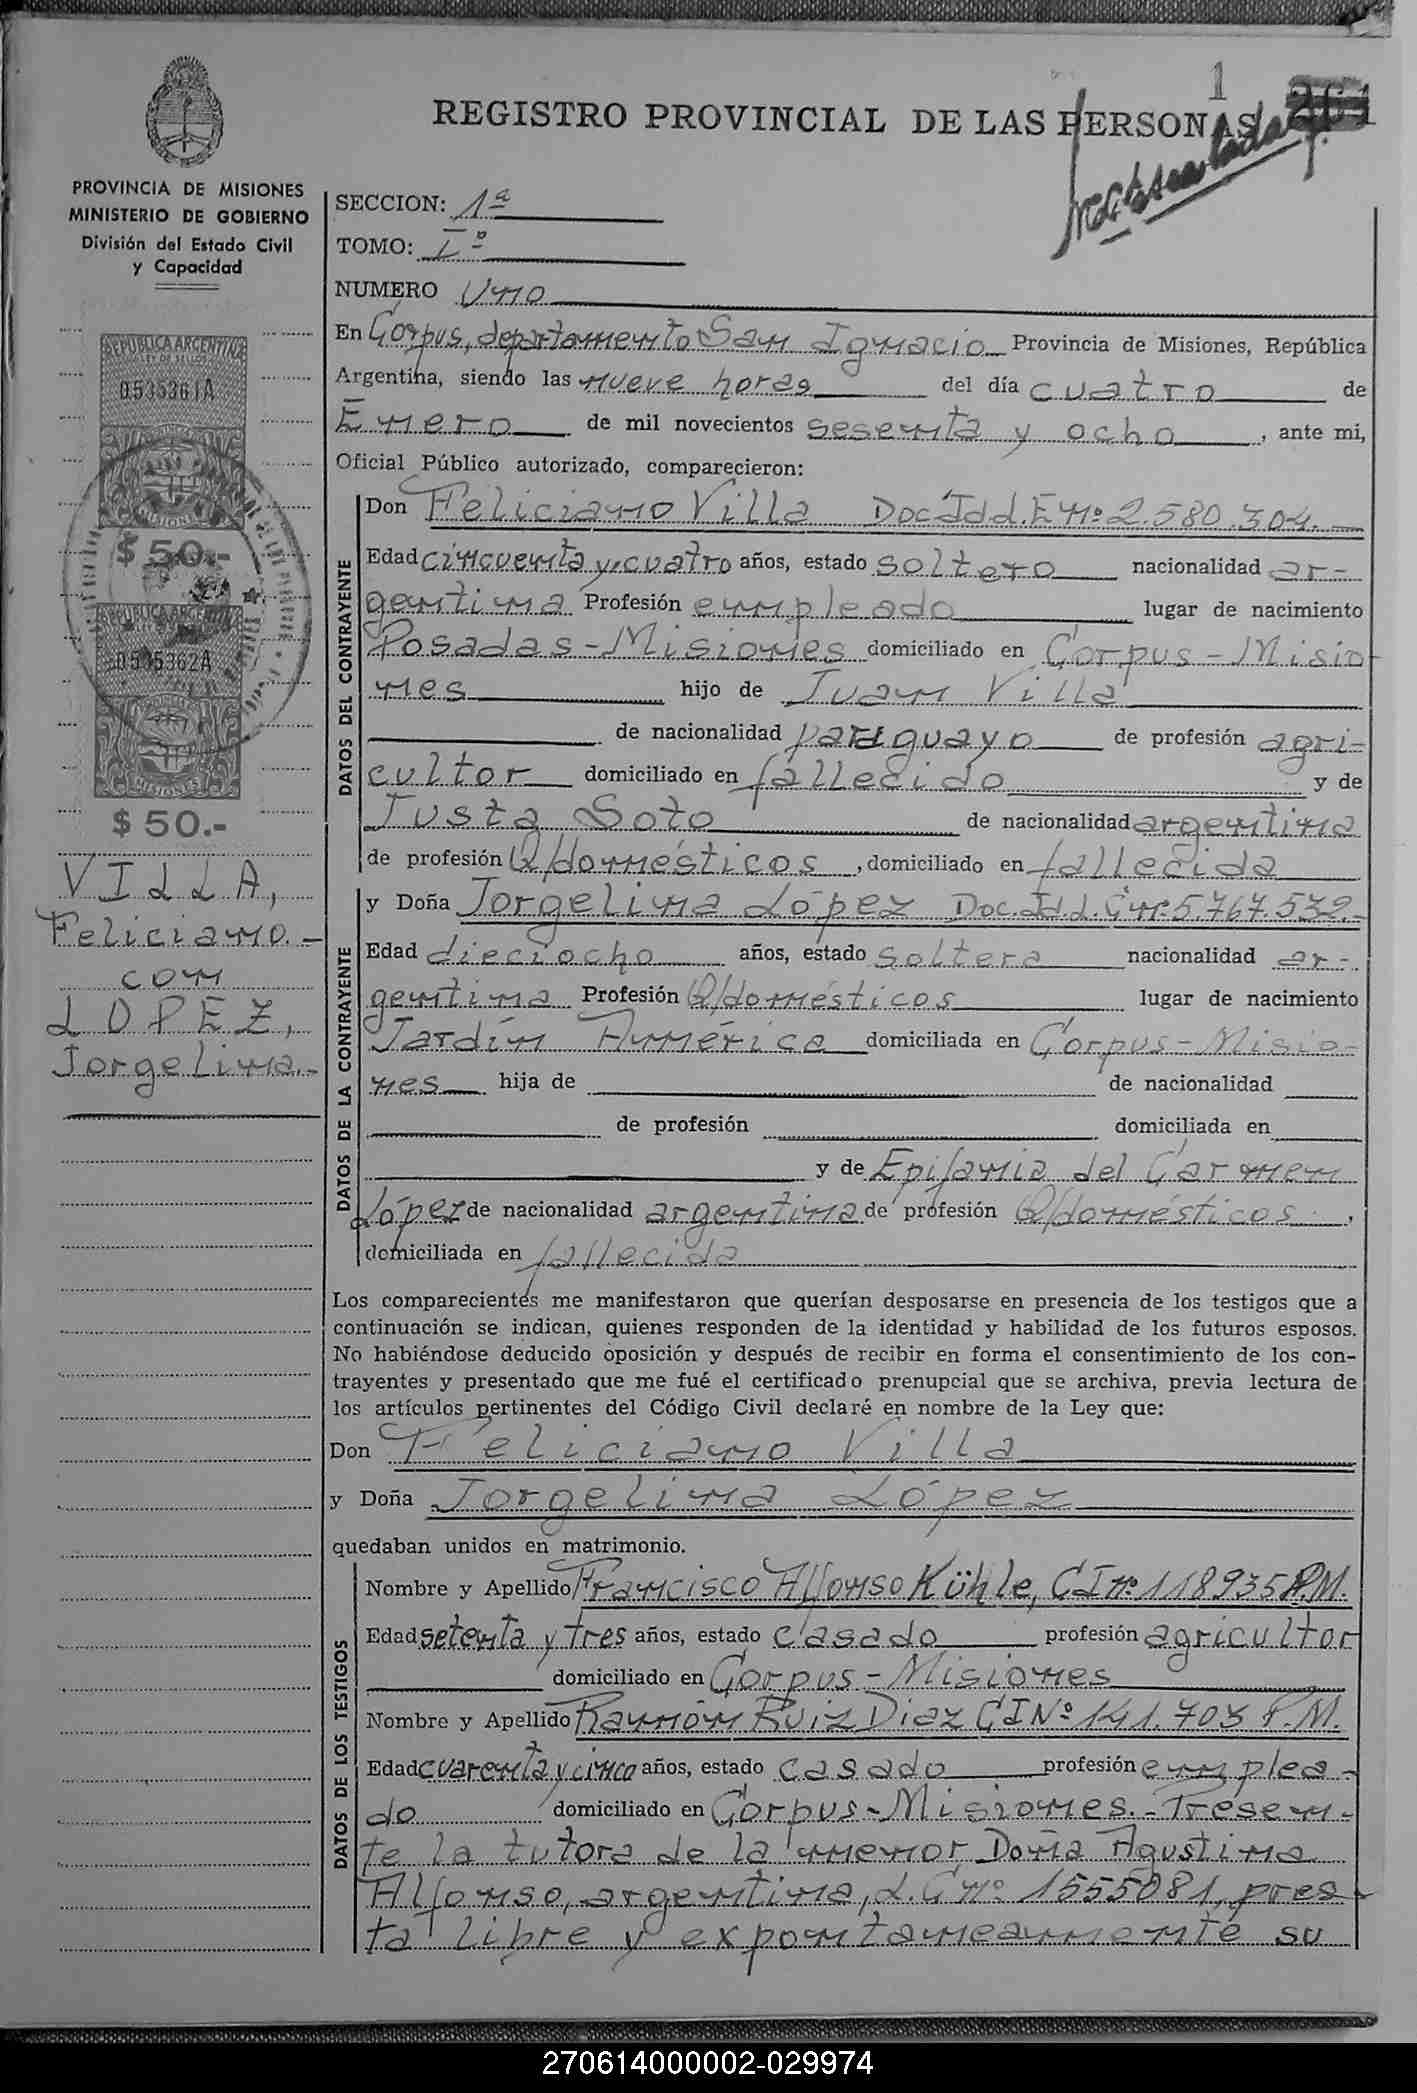 1
REGISTRO PROVINCIAL DE LAS PERSONAS
PROVINCIA DE MISIONES
MINISTERIO DE GOBIERNO
División del Estado Civil
y Capacidad
SECCION: 1ª
TOMO: Iº
NUMERO Uno
En Corpus, departamento San Ignacio Provincia de Misiones, República
Argentina, siendo las nueve horas del día cuatro de
Enero de mil novecientos sesenta y ocho, ante mi,
Oficial Público autorizado, comparecieron:
REPUBLICA ARGENTINA
LEY DE SELLOS
0535361A
MISIONES
$ 50.-
REPUBLICA ARGENTINA
0535362A
MISIONES
$ 50.-
VILLA,
Feliciano.-
con
LOPEZ,
Jorgelina.-
DATOS DEL CONTRAYENTE
Don Feliciano Villa Doc. Idd. E nº 2.580.304.
Edad cincuenta y cuatro años, estado soltero nacionalidad ar-
gentina Profesión empleado lugar de nacimiento
Posadas-Misiones domiciliado en Corpus-Misio
nes hijo de Juan Villa
de nacionalidad paraguayo de profesión agri-
cultor domiciliado en fallecido y de
Justa Soto de nacionalidad argentina
de profesión Q/domésticos, domiciliado en fallecida
DATOS DE LA CONTRAYENTE
y Doña Jorgelina López Doc. Id. L.C. nº 5.767.532.-
Edad dieciocho años, estado soltera nacionalidad ar-
gentina Profesión Q/domésticos lugar de nacimiento
Jardín América domiciliada en Corpus-Misio-
nes hija de de nacionalidad
de profesión domiciliada en
y de Epifania del Carmen
López de nacionalidad argentina de profesión Q/domésticos,
domiciliada en fallecida
Los comparecientes me manifestaron que querían desposarse en presencia de los testigos que a
continuación se indican, quienes responden de la identidad y habilidad de los futuros esposos.
No habiéndose deducido oposición y después de recibir en forma el consentimiento de los con-
trayentes y presentado que me fué el certificado prenupcial que se archiva, previa lectura de
los artículos pertinentes del Código Civil declaré en nombre de la Ley que:
Don Feliciano Villa
y Doña Jorgelina López
quedaban unidos en matrimonio.
DATOS DE LOS TESTIGOS
Nombre y Apellido Francisco Alfonso Kühle, CI nº 118935 P.M.
Edad setenta y tres años, estado casado profesión agricultor
domiciliado en Corpus-Misiones
Nombre y Apellido Ramón Ruiz Diaz CI Nº 141.703 P.M.
Edad cuarenta y cinco años, estado casado profesión emplea-
do domiciliado en Corpus-Misiones.-Presen-
te la tutora de la menor Doña Agustina
Alfonso, argentina, L.C nº 1555081, pres-
ta libre y expontaneamente su
270614000002-029974